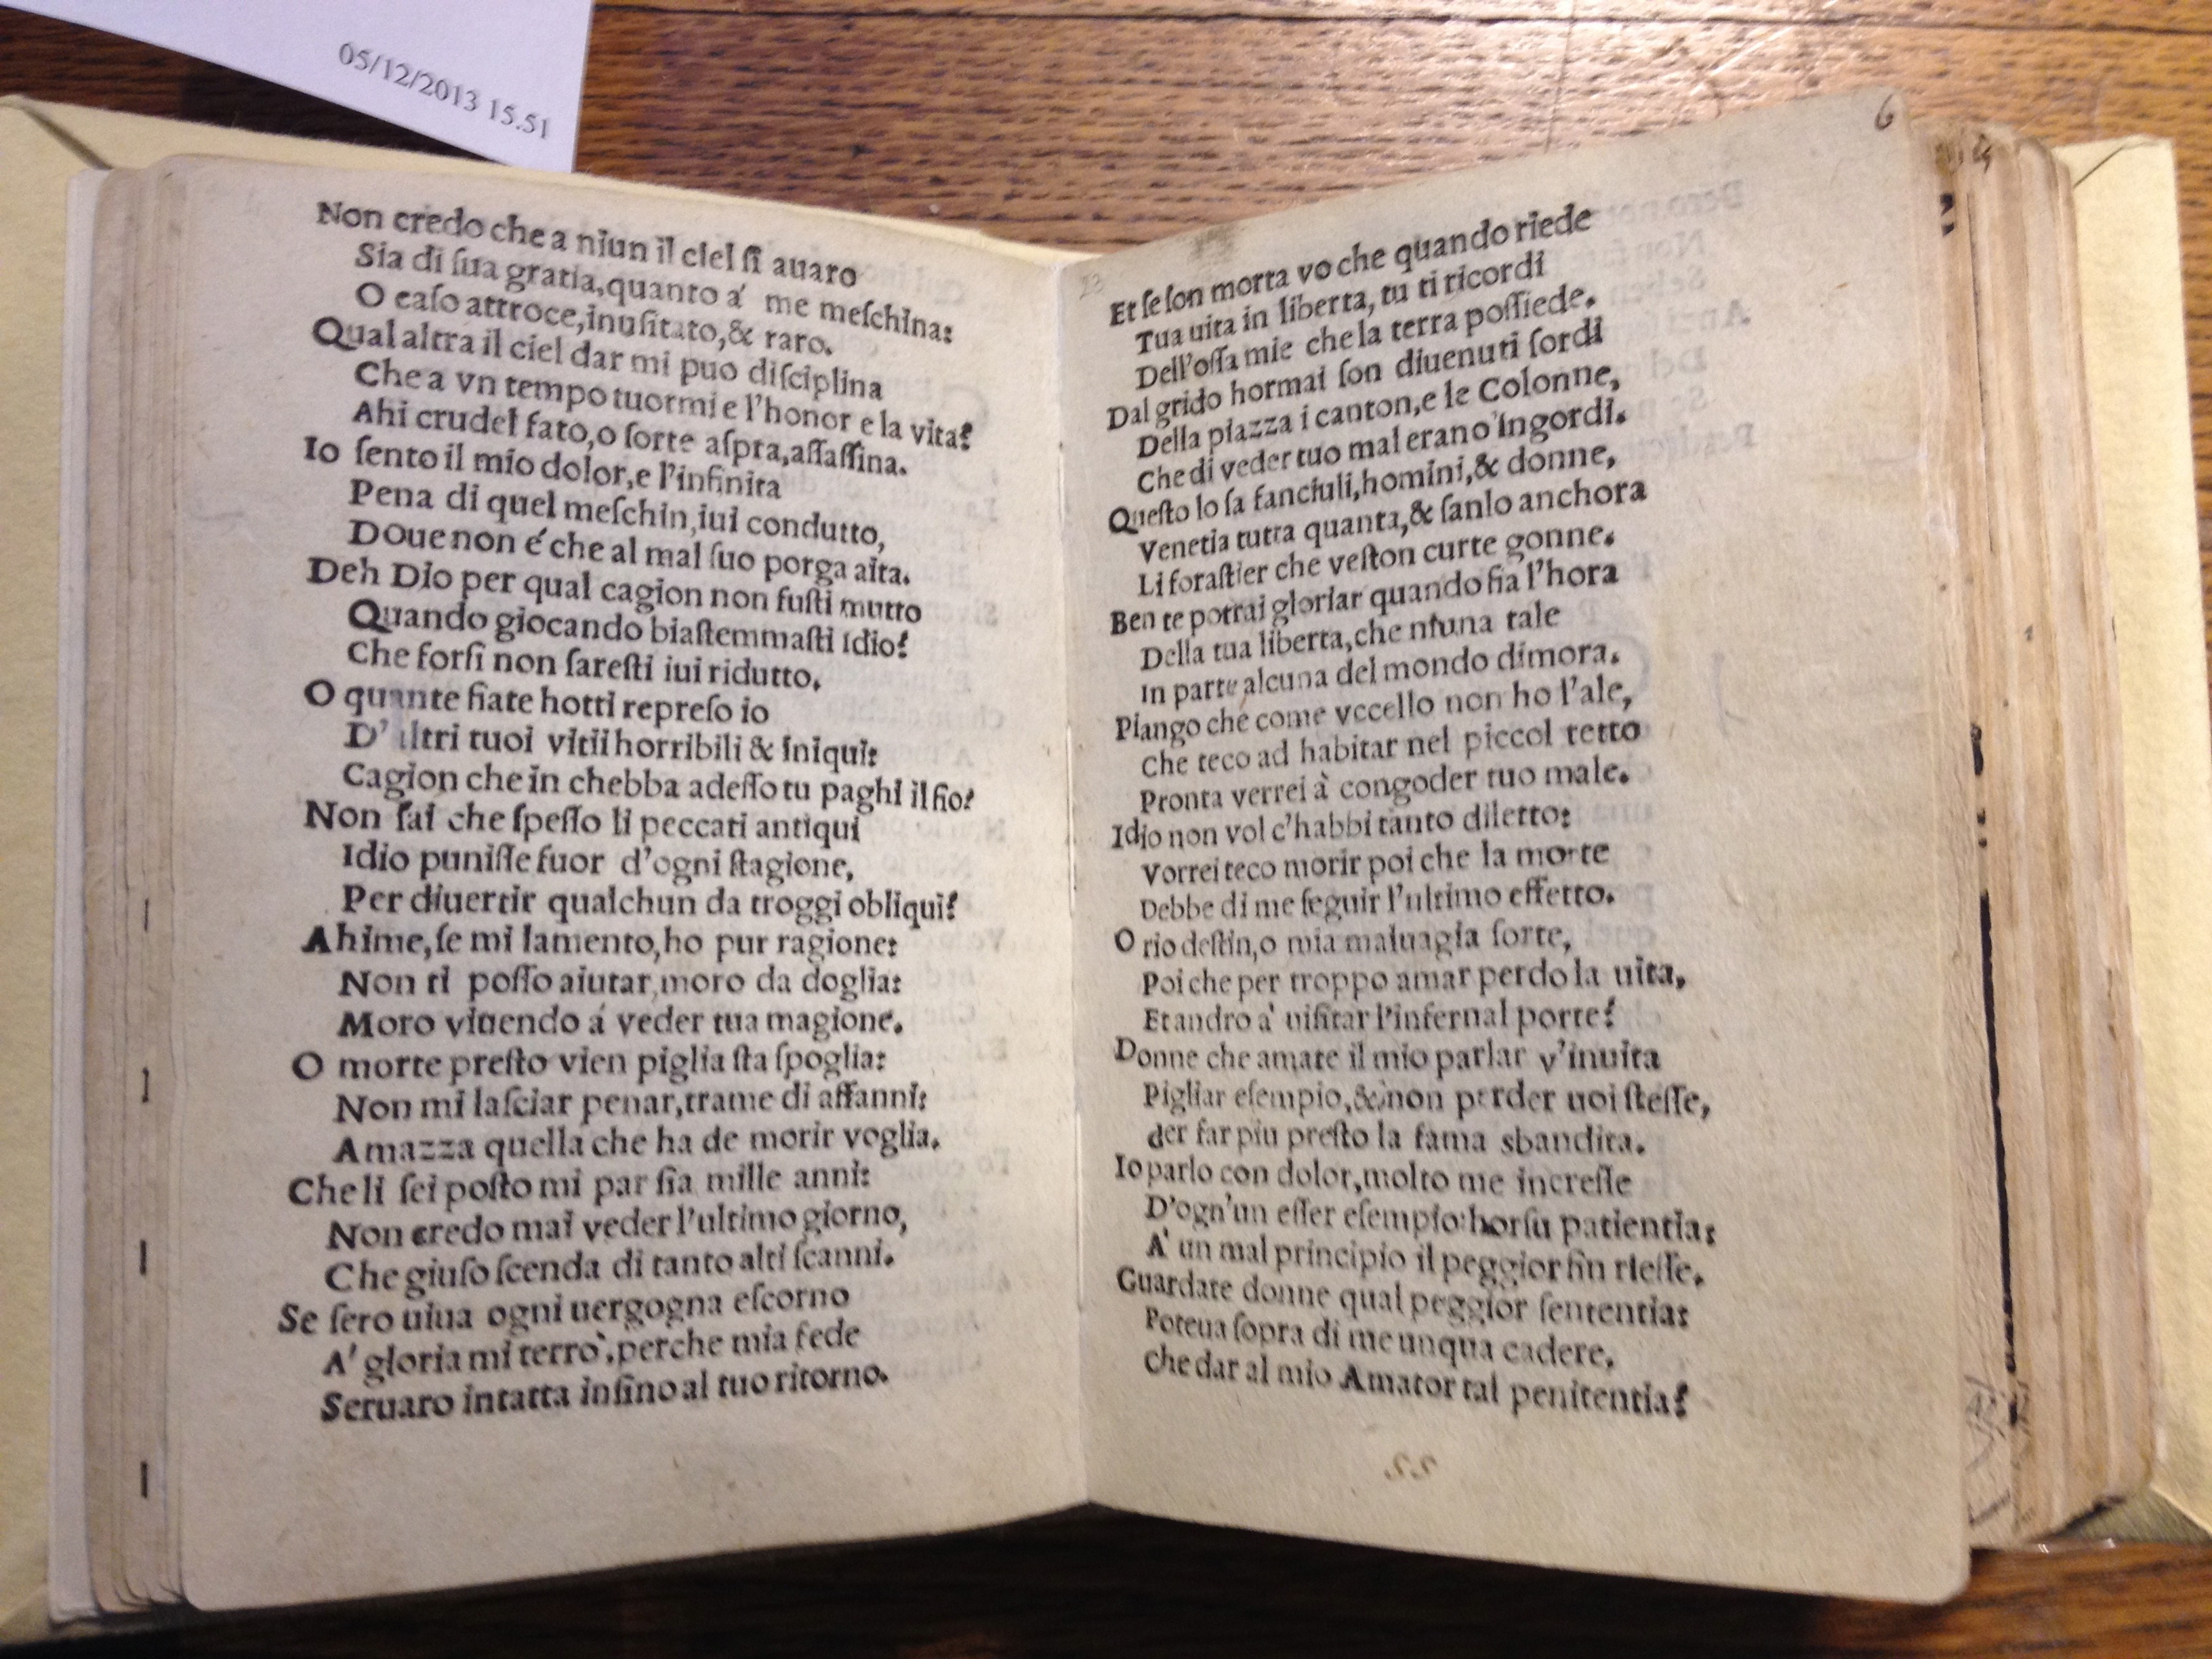 05/12/2013 15.51
Non credo che a niun il ciel ſi auaro
Sia di ſua gratia,quanto a' me meſchina:
O caſo attroce,inuſitato,& raro.
Qual altra il ciel dar mi puo diſciplina
Che a vn tempo tuormi e l'honor e la vita?
Ahi crudel fato,o ſorte aſpra,aſſaſſina.
Io ſento il mio dolor,e l'infinita
Pena di quel meſchin,iui condutto,
DOue non é che al mal ſuo porga aita.
Deh Dio per qual cagion non fuſti mutto
Quando giocando biaſtemmaſti idio?
Che forſi non ſareſti iui ridutto.
O quante fiate hotti repreſo io
D'altri tuoi vitii horribili & iniqui:
Cagion che in chebba adeſſo tu paghi il fio?
Non ſai che ſpeſſo li peccati antiqui
Idio puniſſe fuor d'ogni ſtagione,
Per diuertir qualchun da troggi obliqui?
Ahime,ſe mi lamento,ho pur ragione:
Non ti poſſo aiutar,moro da doglia:
Moro viuendo á veder tua magione.
O morte preſto vien piglia ſta ſpoglia:
Non mi laſciar penar,trame di affanni:
Amazza quella che ha de morir voglia.
Che li ſei poſto mi par ſia mille anni:
Non credo mai veder l'ultimo giorno,
Che giuſo ſcenda di tanto alti ſcanni.
Se ſero uiua ogni uergogna eſcorno
A' gloria mi terrò,perche mia fede
Seruaro intatta inſino al tuo ritorno.
6
23
Et ſe ſon morta vo che quando riede
Tua uita in liberta, tu ti ricordi
Dell'oſſa mie che la terra poſſiede.
Dal grido hormai ſon diuenuti ſordi
Della piazza i canton,e le Colonne,
Che di veder tuo mal erano ingordi.
Queſto lo ſa fanciuli,homini,& donne,
Venetia tutta quanta,& ſanlo anchora
Li foraſtier che veſton curte gonne.
Ben te potrai gloriar quando fia l'hora
Della tua liberta,che niuna tale
In parte alcuna del mondo dimora.
Piango che come vccello non ho l'ale,
Che teco ad habitar nel piccol tetto
Pronta verrei à congoder tuo male.
Idio non vol c'habbi tanto diletto:
Vorrei teco morir poi che la morte
Debbe di me ſeguir l'ultimo effetto.
O rio deſtin,o mia maluagia ſorte,
Poi che per troppo amar perdo la uita,
Et andro a' uiſitar l'infernal porte?
Donne che amate il mio parlar v'inuita
Pigliar eſempio,& non perder uoi ſteſſe,
der far piu preſto la fama sbandita.
Io parlo con dolor,molto me increſſe
D'ogn'un eſſer eſempio:horſu patientia:
A' un mal principio il peggior fin rieſſe.
Guardate donne qual peggior ſententia:
Poteua ſopra di me unqua cadere,
Che dar al mio Amator tal penitentia?